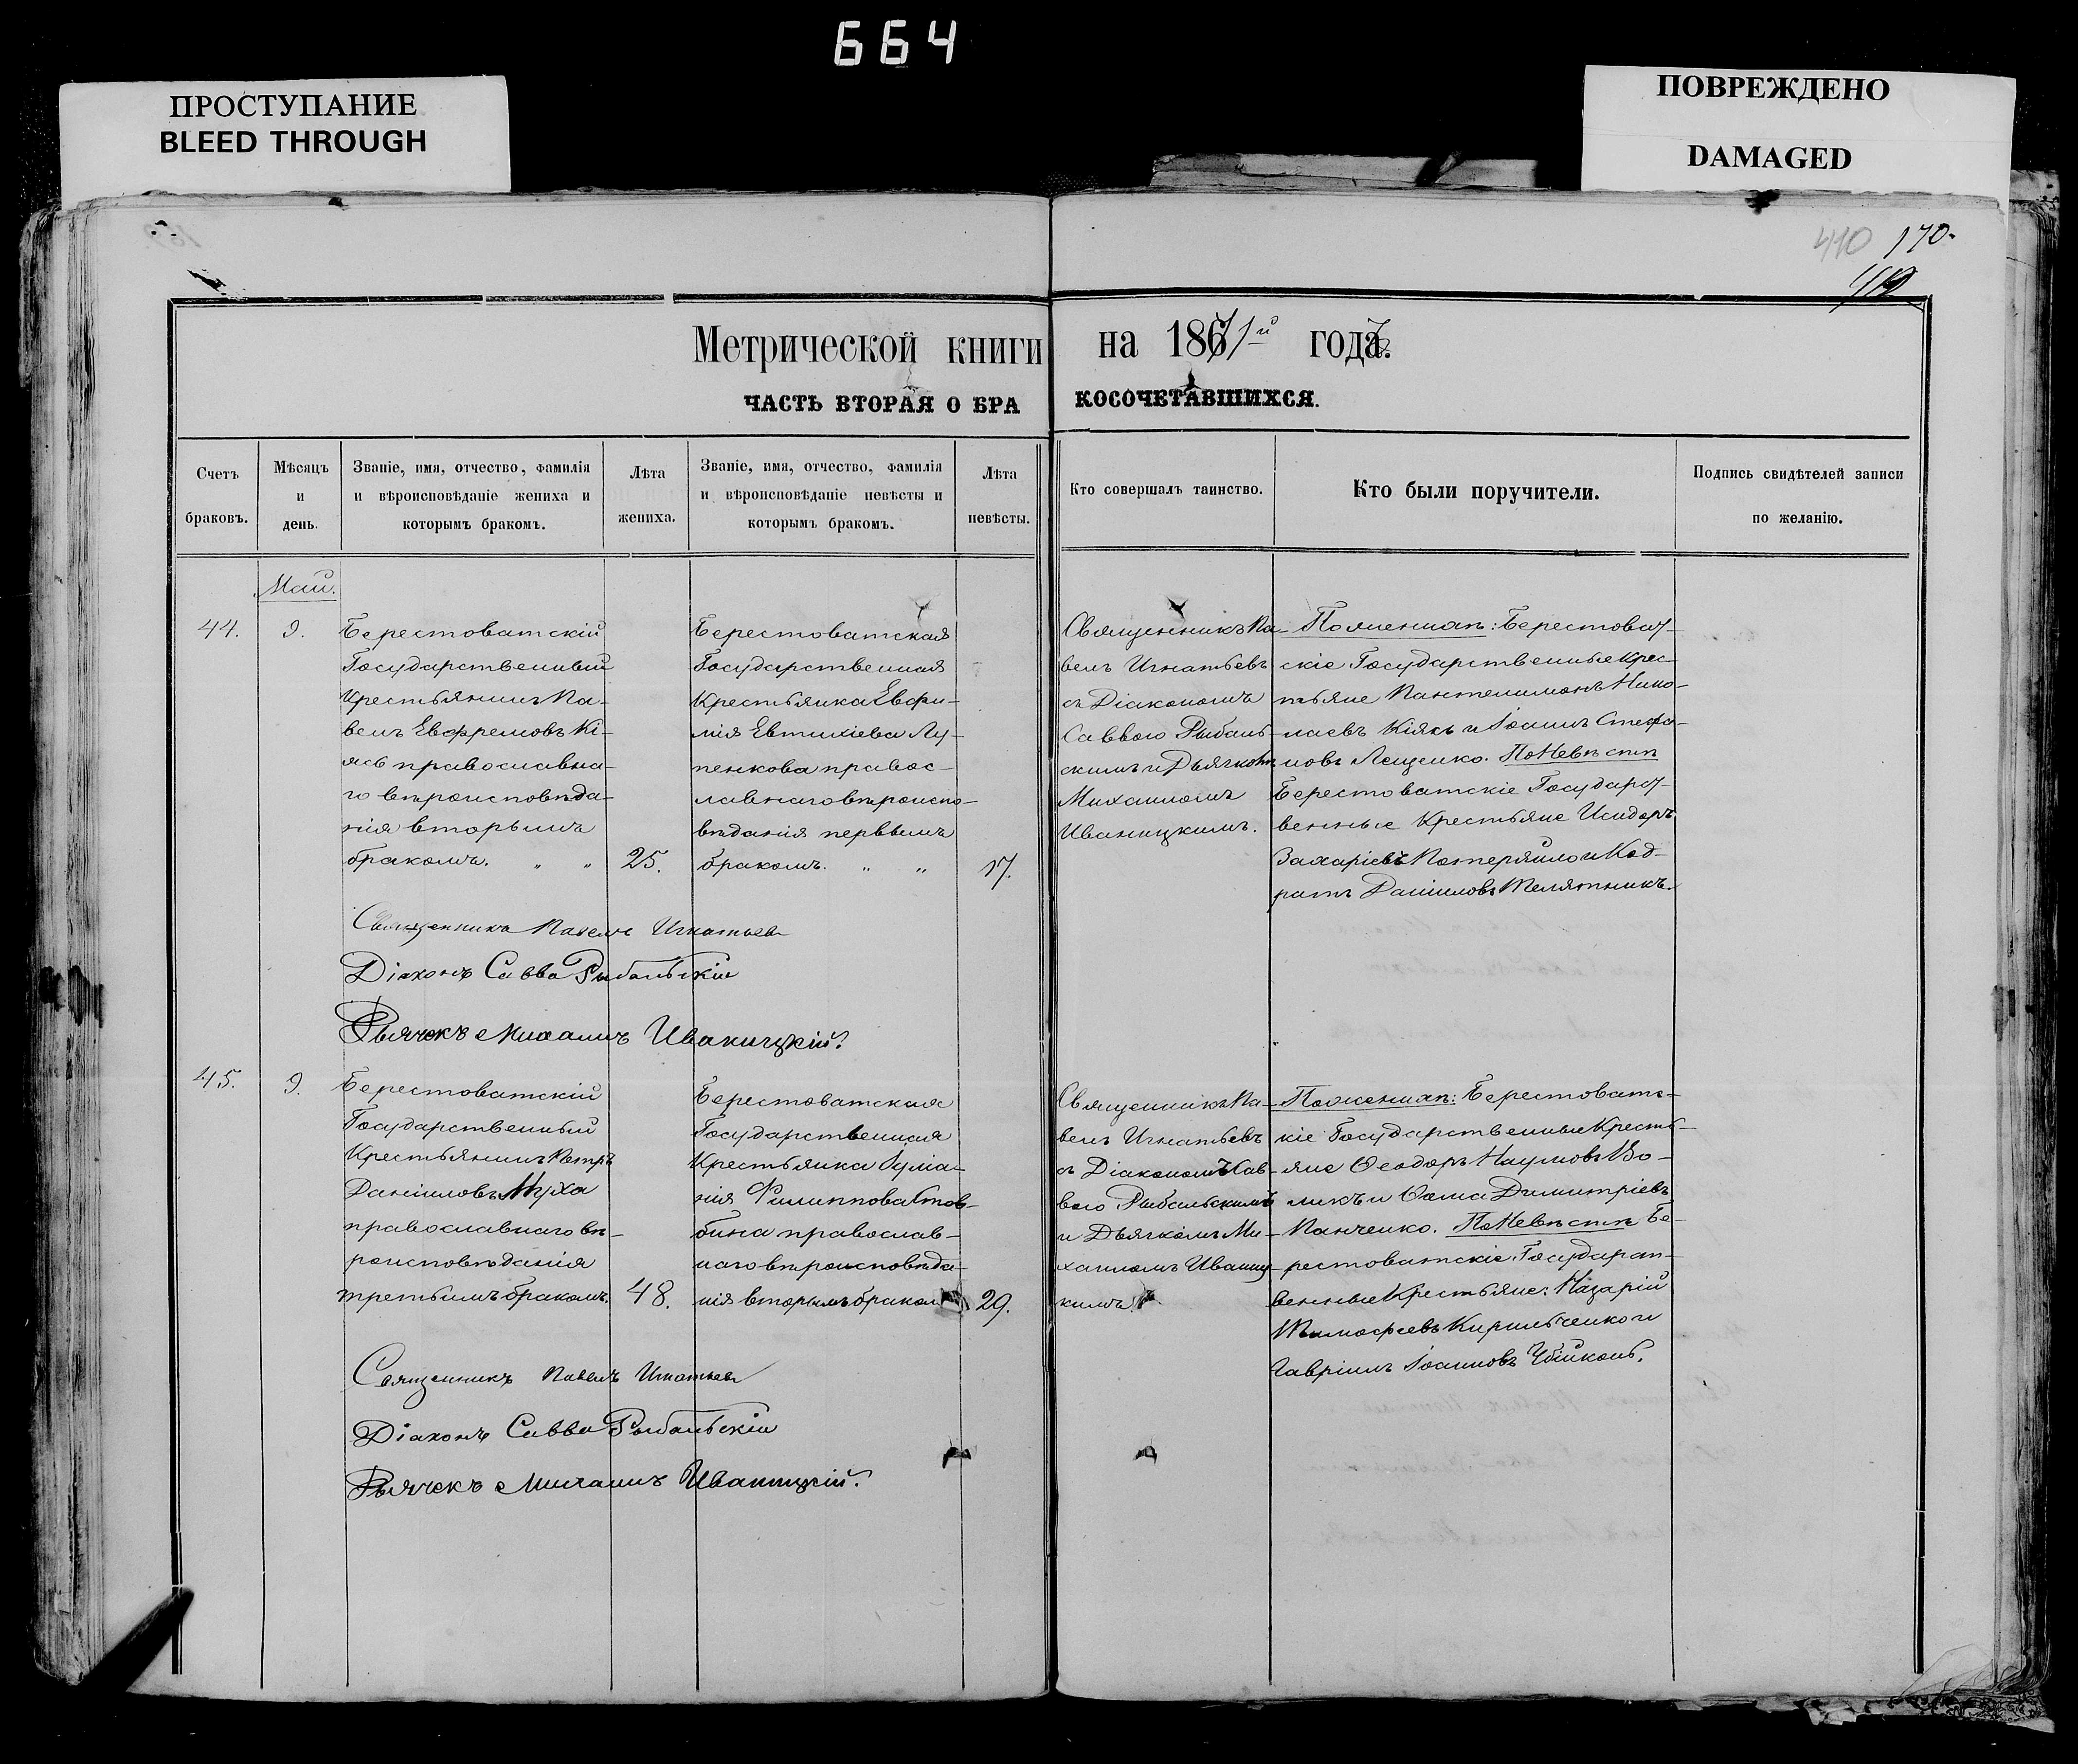 664
ПРОСТУПАНИЕ
BLEED THROUGH
ПОВРЕЖДЕНО
DAMAGED
410 170.
Метрической книги на 1871й годъ.
ЧАСТЬ ВТОРАЯ О БРАКОСОЧЕТАВШИХСЯ.
Счетъ
браковъ.
Мѣсяцъ
и
день.
Званіе, имя, отчество, фамилія
и вѣроисповѣданіе жениха и
которымъ бракомъ.
Лѣта
жениха.
Званіе, имя, отчество, фамилія
и вѣроисповѣданіе невѣсты и
которымъ бракомъ.
Лѣта
невѣсты.
Кто совершалъ таинство.
Кто были поручители.
Подпись свидѣтелей записи
по желанію.
Май.
44.
9.
Берестоватскій
Государственный
Крестьянинъ Па-
велъ Евфремовъ Кі-
якъ православна-
го вѣроисповѣда-
нія вторымъ
бракомъ. „ „
25.
Берестоватская
Государственная
Крестьянка Евфи-
мія Евтихіева Лу-
пенкова правос-
лавнаго вѣроиспо-
вѣданія первымъ
бракомъ. „ „
17.
Священникъ Па-
велъ Игнатьевъ
съ Діакономъ
Саввою Рыбаль-
скимъ и Дьячкомъ
Михаиломъ
Иваницкимъ.
По женихѣ: Берестоват-
скіе Государственные Крес-
тьяне Пантелимонъ Нико-
лаевъ Кіякъ и Іоаннъ Стефа-
новъ Лещенко. По Невѣстѣ
Берестоватскіе Государст-
венные Крестьяне Исидоръ
Захаріевъ Потеряйло и Код-
ратъ Даніиловъ Телятникъ.
Священникъ Павелъ Игнатьевъ
Діаконъ Савва Рыбальскій
Дьячекъ Михаилъ Иваницкій.
45.
9.
Берестоватскій
Государственный
Крестьянинъ Петръ
Даніиловъ Муха
православнаго вѣ-
роисповѣданія
третьимъ бракомъ.
48.
Берестоватская
Государственная
Крестьянка Іуліа-
нія Филиппова Стов-
бина православ-
наго вѣроисповѣда-
нія вторымъ браком
29.
Священникъ Па-
велъ Игнатьевъ
съ Діакономъ Сав-
вою Рыбальскимъ
и Дьячкомъ Ми-
хаиломъ Иваниц-
кимъ.
По женихѣ: Берестоватс-
кіе Государственные Кресть-
яне Ѳеодоръ Наумовъ Во-
ликъ и Ѳома Димитріевъ
Панченко. По Невѣстѣ Бе-
рестоватскіе Государст-
венные Крестьяне: Назарій
Тимофеевъ Кирильченко и
Гавріилъ Іоанновъ
Священникъ Павелъ Игнатьевъ
Діаконъ Савва Рыбальскій
Дьячекъ Михаилъ Иваницкій.